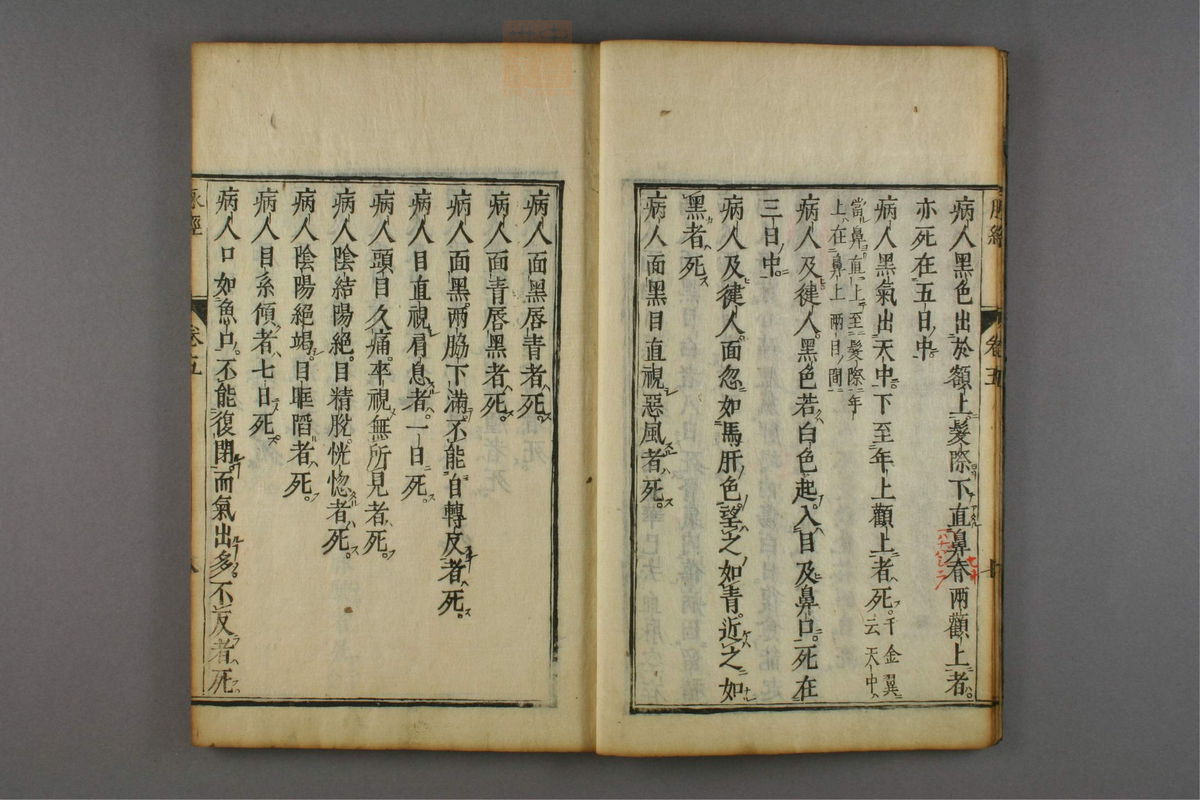 病人黑色出於額上髮際下直鼻脊兩顴上者
亦死在五日中
病人黑氣出天中下至年上顴上者死千金翼云天中
當鼻直上至髮際年
上在鼻上兩目間
病人及徤人黑色若白色起入目及鼻口死在
三日中
病人及徤人面忽如馬肝色望之如青近之如
黑者死
病人面黑目直視惡風者死
病人面黑唇青者死
病人面青唇黑者死
病人面黑兩脇下滿不能自轉反者死
病人目直視肩息者一日死
病人頭目久痛卒視無所見者死
病人陰結陽絕目精脫恍惚者死
病人陰陽絕竭目眶陷者死
病人目系傾者七日死
病人口如魚口不能復閉而氣出多不反者死
卷五